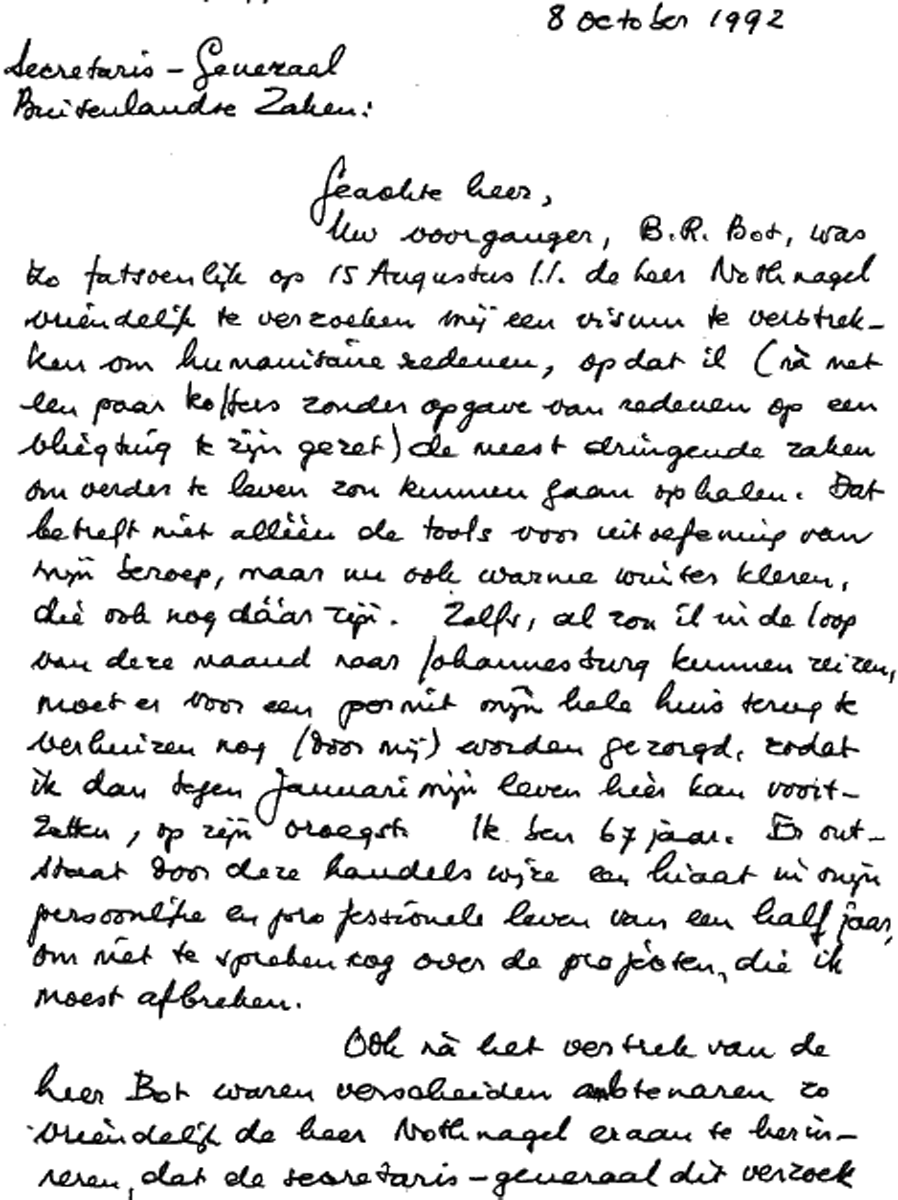 8 october 1992
Secretaris-Generaal
Buitenlandse Zaken:
Geachte heer,
Uw voorganger, B.R. Bot, was
zo fatsoenlijk op 15 Augustus l.l. de heer Nothnagel
vriendelijk te verzoeken mij een visum te verstrek-
ken om humanitaire redenen, opdat ik (nà met
een paar koffers zonder opgave van redenen op een
vliegtuig te zijn gezet) de meest dringende zaken
om verder te leven zou kunnen gaan ophalen. Dat
betreft niet alléén de tools voor uitoefening van
mijn beroep, maar nu ook warme winter kleren,
die ook nog dáár zijn. Zelfs, al zou ik in de loop
van deze maand naar Johannesburg kunnen reizen,
moet er voor een permit mijn hele huis terug te
verhuizen nog (door mij) worden gezorgd, zodat
ik dan tegen Januari mijn leven hier kan voort-
zetten, op zijn vroegst. Ik ben 67 jaar. Er ont-
staat door deze handelswijze een hiaat in mijn
persoonlijke en professionele leven van een half jaar,
om niet te spreken nog over de projecten, die ik
moest afbreken.
Ook nà het vertrek van de
heer Bot waren verscheiden ambtenaren zo
vriendelijk de heer Nothnagel eraan te herin-
neren, dat de secretaris-generaal dit verzoek